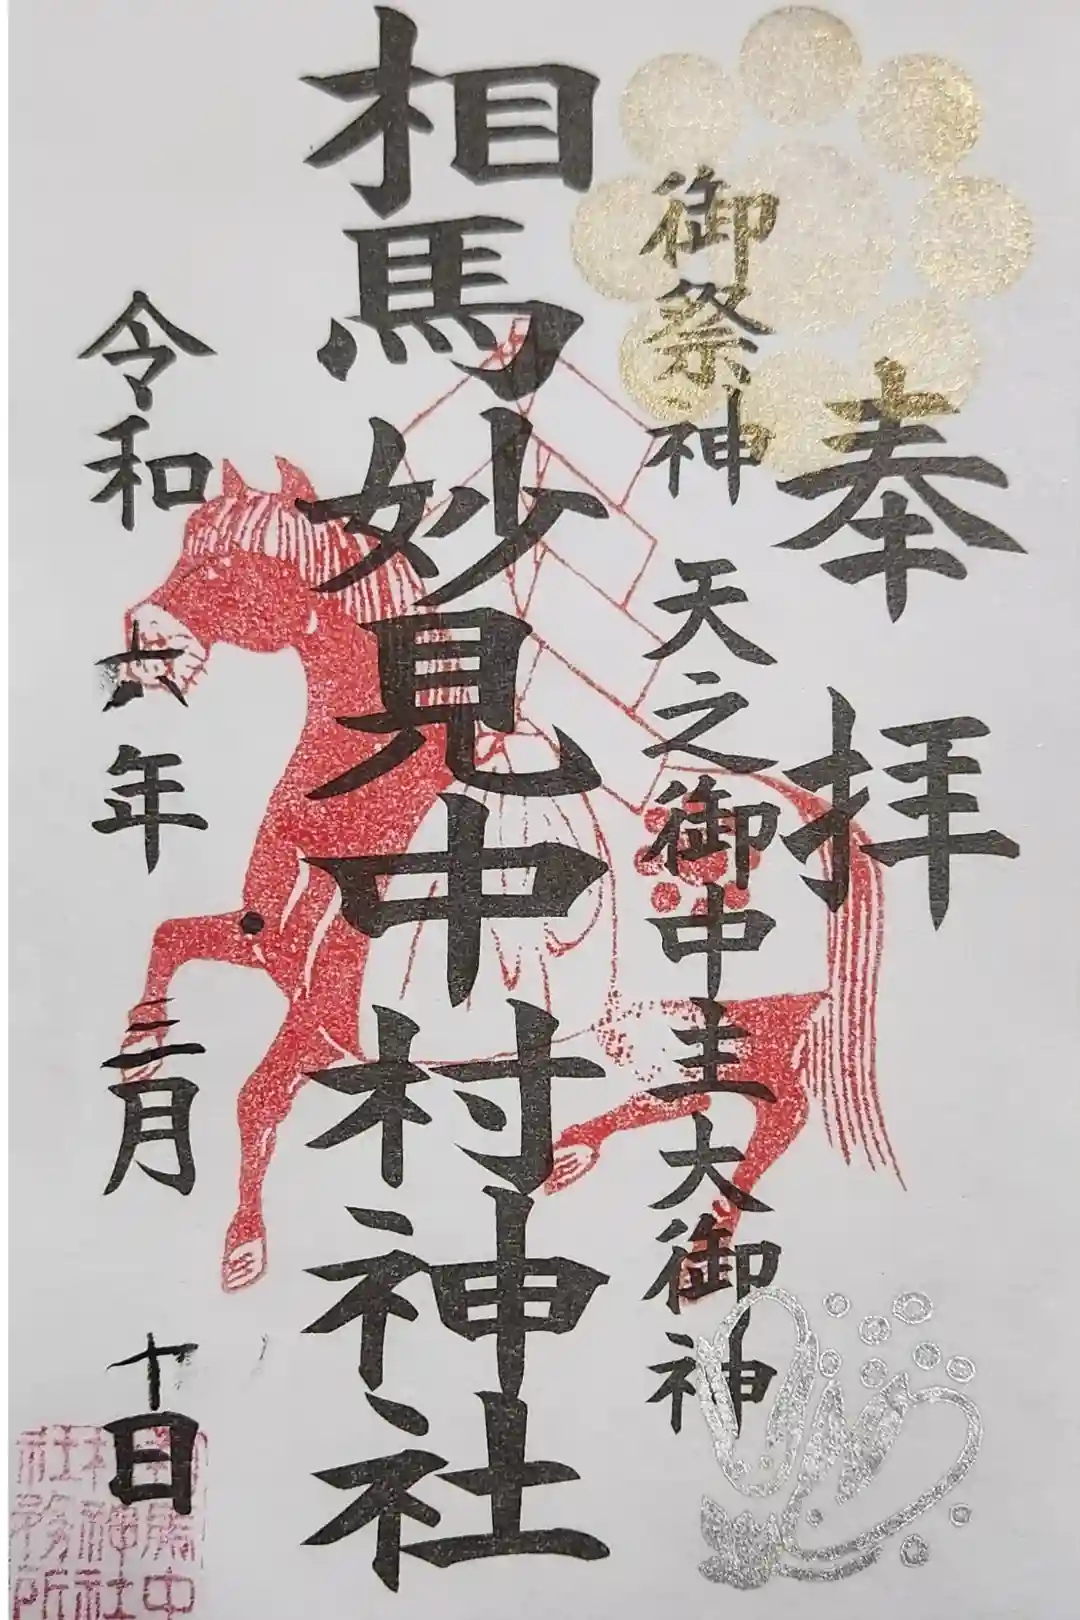 奉拝
御祭神 天之御中主大御神
相馬妙見中村神社
令和六年三月十日